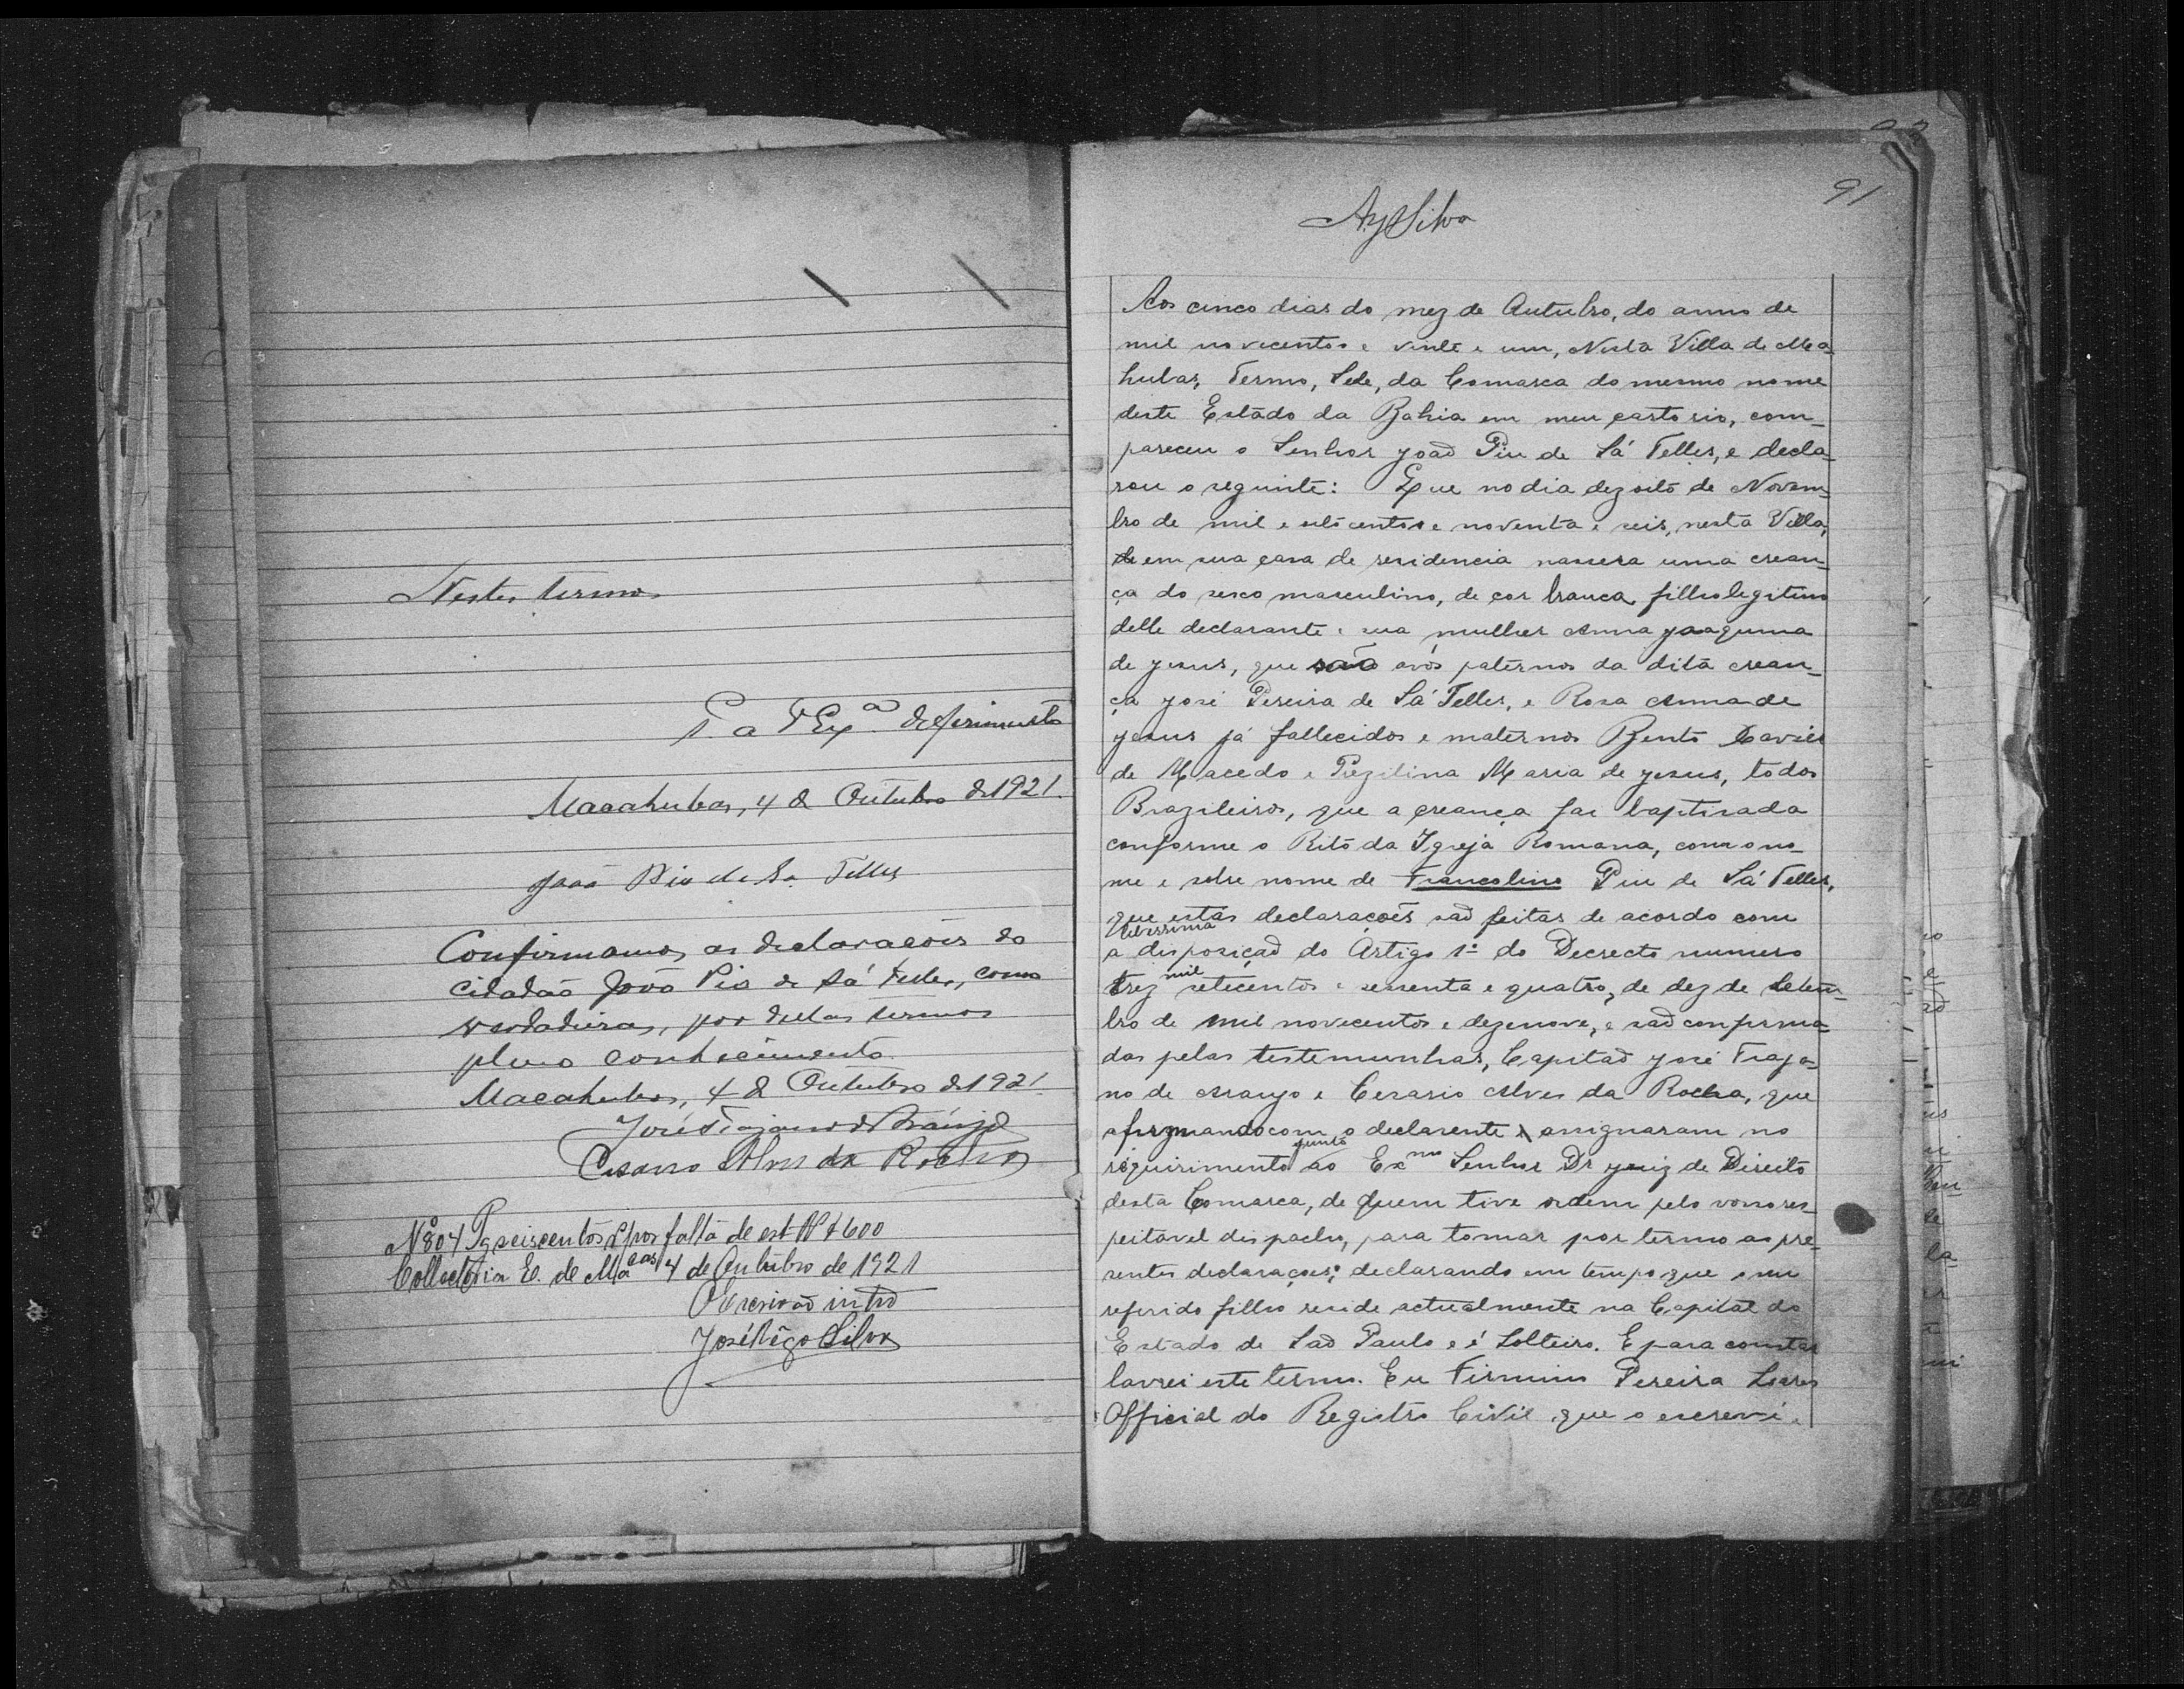 Nestes termos
P. a V Exª. deferimento
Macahubas, 4 de Outubro de 1921.
João Pio de Sá Telles
Confirmamos as declarações do
cidadão João Pio de Sá Telles, como
verdadeiras, por dellas termos
pleno conhecimento.
Macahubas, 4 de Outubro de 1921
José Trajano de Araújo
Cesario Alves da Rocha
Nº 804 Pg seiscentos rs por falta de est. Rs $600
Collectoria E. de Macas 4 de Outubro de 1921
O Escrivão intº
José Rêgo Silva
91
AySilva
Aos cinco dias do mez de Outubro, do anno de
mil novecentos e vinte e um, Nesta Villa de Maca
hubas, Termo, Sede, da Comarca do mesmo nome
deste Estado da Bahia em meu cartorio, com-
pareceu o Senhor João Piu de Sá Telles, e decla-
rou o seguinte: Que no dia dezoito de Novem-
bro de mil e oitocentos e noventa e seis, nesta Villa,
de em sua casa de residencia nascera uma crean-
ça do sexo masculino, de cor branca, filho legitimo
delle declarante e sua mulher Anna Joaquina
de Jesus, que são avós paternos da dita crean-
ça José Pereira de Sá Telles, e Rosa Anna de
Jesus já fallecidos e maternos Bento Xavier
de Macedo e Prezilina Maria de Jesus, todos
Brazileiros, que a creança foi baptisada
conforme o Rito da Igreja Romana, com o no-
me e sobre nome de Francolino Piu de Sá Telles,
que estas declarações são feitas de acordo com
a disposição do Artigo 1º do Decrecto numero
trez mil setecentos e sessenta e quatro, de dez de Setem-
bro de mil novecentos e dezenove, e são confirma-
das pelas testemunhas, Capitão José Traja-
no de Araujo e Cesario Alves da Rocha, que
afirmando com o declarente assignaram no
requirimento junto ao Exmo Senhor Dr Juiz de Direito
desta Comarca, de quem tive ordem pelo vosso res-
peitavel despacho, para tomar por termo as pre-
sentes declarações; declarando em tempo que o seu
referido filho reside actualmente na Capital do
Estado de São Paulo e é Solteiro. E para constar
lavrei este termo. Eu Firmino Pereira Soares
Official do Registro Civil que o escrevi.